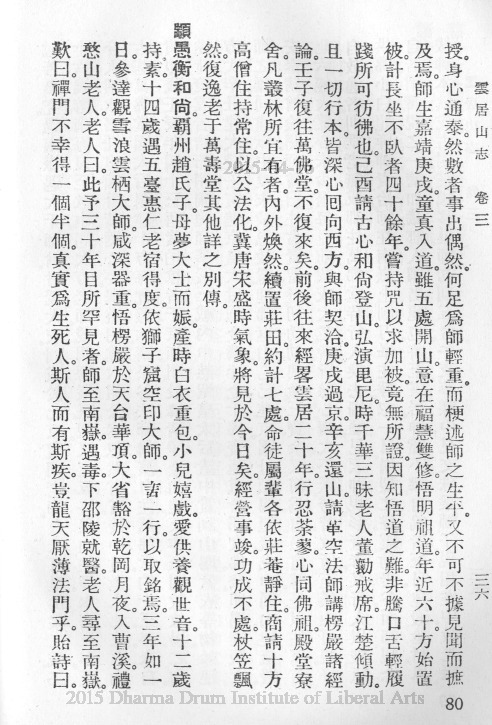 雲居山志　卷三　三六
授。身心通泰。然數者事出偶然。何足爲師輕重。而梗述師之生平。又不可不據見聞而摭
及焉。師生嘉靖庚戌。童真入道。雖五處開山。意在福慧雙修。悟明祖道。年近六十。方始置
被。計長坐不臥者四十餘年。嘗持咒以求加被。竟無所證。因知悟道之難。非騰口舌。輕履
踐所可彷彿也。己酉請古心和尚登山。弘演毘尼。時千華三昧老人董勸戒席。江楚傾動。
且一切行本。皆深心囘向西方。與師契洽。庚戌過京。辛亥還山。請革空法師講楞嚴諸經
論。壬子復往萬佛堂。不復來矣。前後往來經畧雲居二十年。行忍荼蓼。心同佛祖。殿堂寮
舍。凡叢林所宜有者。內外煥然。續置莊田。約計七處。命徒屬輩各依莊菴靜住。商請十方
高僧住持常住。以公法化。冀唐宋盛時氣象。將見於今日矣。經營事竣。功成不處。杖笠飄
然。復逸老于萬壽堂。其他詳之別傳。
顓愚衡和尚。霸州趙氏子。母夢大士而娠。產時白衣重包。小兒嬉戲。愛供養觀世音。十二歲
持素。十四歲遇五臺惠仁老宿得度。依獅子窟空印大師。一言一行。以取銘焉。三年如一
日。參達觀雪浪雲棲大師。咸深器重。悟楞嚴於天台華頂。大省豁於乾岡月夜。入曹溪。禮
憨山老人。老人曰。此予三十年目所罕見者。師至南嶽。遇毒。下邵陵就醫。老人尋至南嶽。
歎曰。禪門不幸得一個半個。真實爲生死人。斯人而有斯疾。豈龍天厭薄法門乎。貽詩曰。
80
2015-4-
2015 Dharma Drum Institute of Liberal Arts